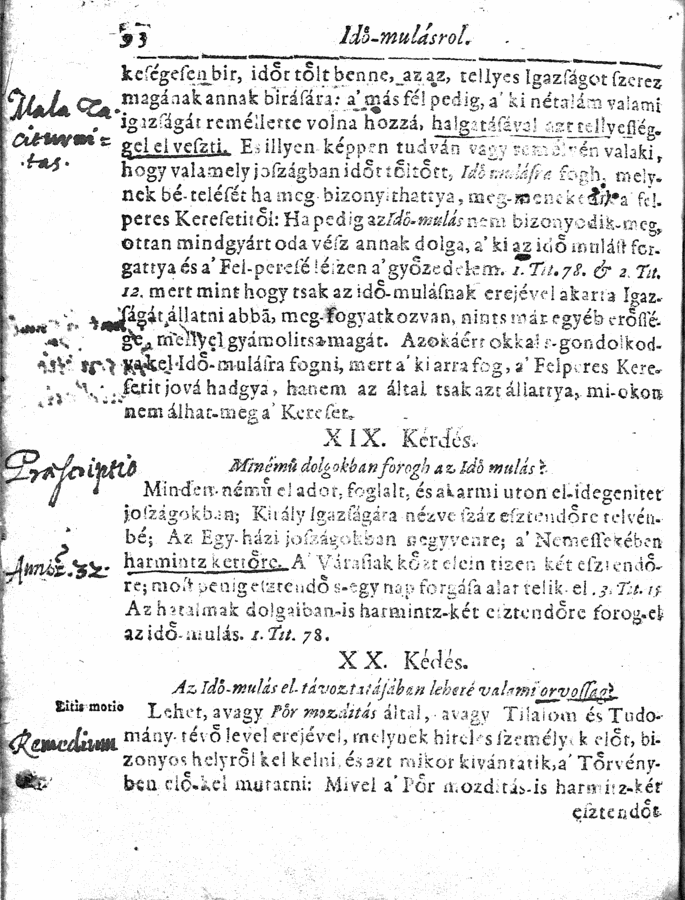 93 Idő-mulásrol.
keſégeſen bir, időt tőlt benne, az az, tellyes Igazſágot ſzerez
magának annak biráſára: a' más fél pedig, a' ki nétalám valami
igazſágát reméllette volna hozzá, halgatáſával azt tellyeſség-
gel el veſzti. Es illyen képpen tudván vagy remélvén valaki,
hogy valamely joſzágban időt tőltőtt, Idő muláſra fogh, mely-
nek bé-teléſét ha meg-bizonyithattya, meg-menekedik a' fel-
peres Kereſetitől: Ha pedig az Idő-mulás nem bizonyodik-meg,
ottan mindgyárt oda véſz annak dolga, a' ki az idő muláſt for-
gattya és a' Fel-pereſé léſzen a' győzedelem. 1. Tit. 78. & 2. Tit.
12. mert mint hogy tsak az idő-mulásnak erejével akarta Igaz-
ſágát állatni abbā, meg-fogyatkozván, nints már egyéb erőſſé-
ge, mellyel gyámolitsa magát. Azokáért okkal s-gondolkod-
va kel Idő-muláſra fogni, mert a' ki arra fog, a' Felperes Kere-
ſetit jová hadgya, hanem az által tsak azt állattya, mi-okon
nem álhat-meg a' Kereſet.
XIX. Kérdés.
Minémű dolgokban forogh az Idő mulás?
Minden-némű el adot, foglalt, és akarmi uton el-idegenitet
joſzágokban; Király Igazſágára nézve ſzáz eſztendőre telvén-
bé; Az Egy-házi joſzágokban negyvenre; a' Nemeſſekében
harmintz kettőre. A' Várasiak kőzt elein tizen két eſztendő-
re; moſt penig eſztendő s-egy nap forgáſa alat telik-el. 3. Tit. 15
Az hatalmak dolgaiban-is harmintz-két eſztendőre forog-el
az idő-mulás. 1. Tit. 78.
XX. Kédés.
Az Idő-mulás el-távoztatájában leheré valami orvoſſag?
Lehet, avagy Pőr mozditás által, avagy Tilalom és Tudo-
mány-tévő level erejével, melynek hiteles ſzemélyek előt, bi-
zonyos helyről kel kelni, és azt mikor kivántatik, a' Tőrvény-
ben elő-kel mutatni: Mivel a' Pőr mozditás-is harmitz-két
eſztendőt
Mala Ta-
citurni=
tas.
Præscriptio
Annis. 32.
Litis motio
Remedium